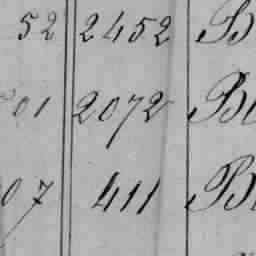 52 2452 B
01 2072 B
07 411 B